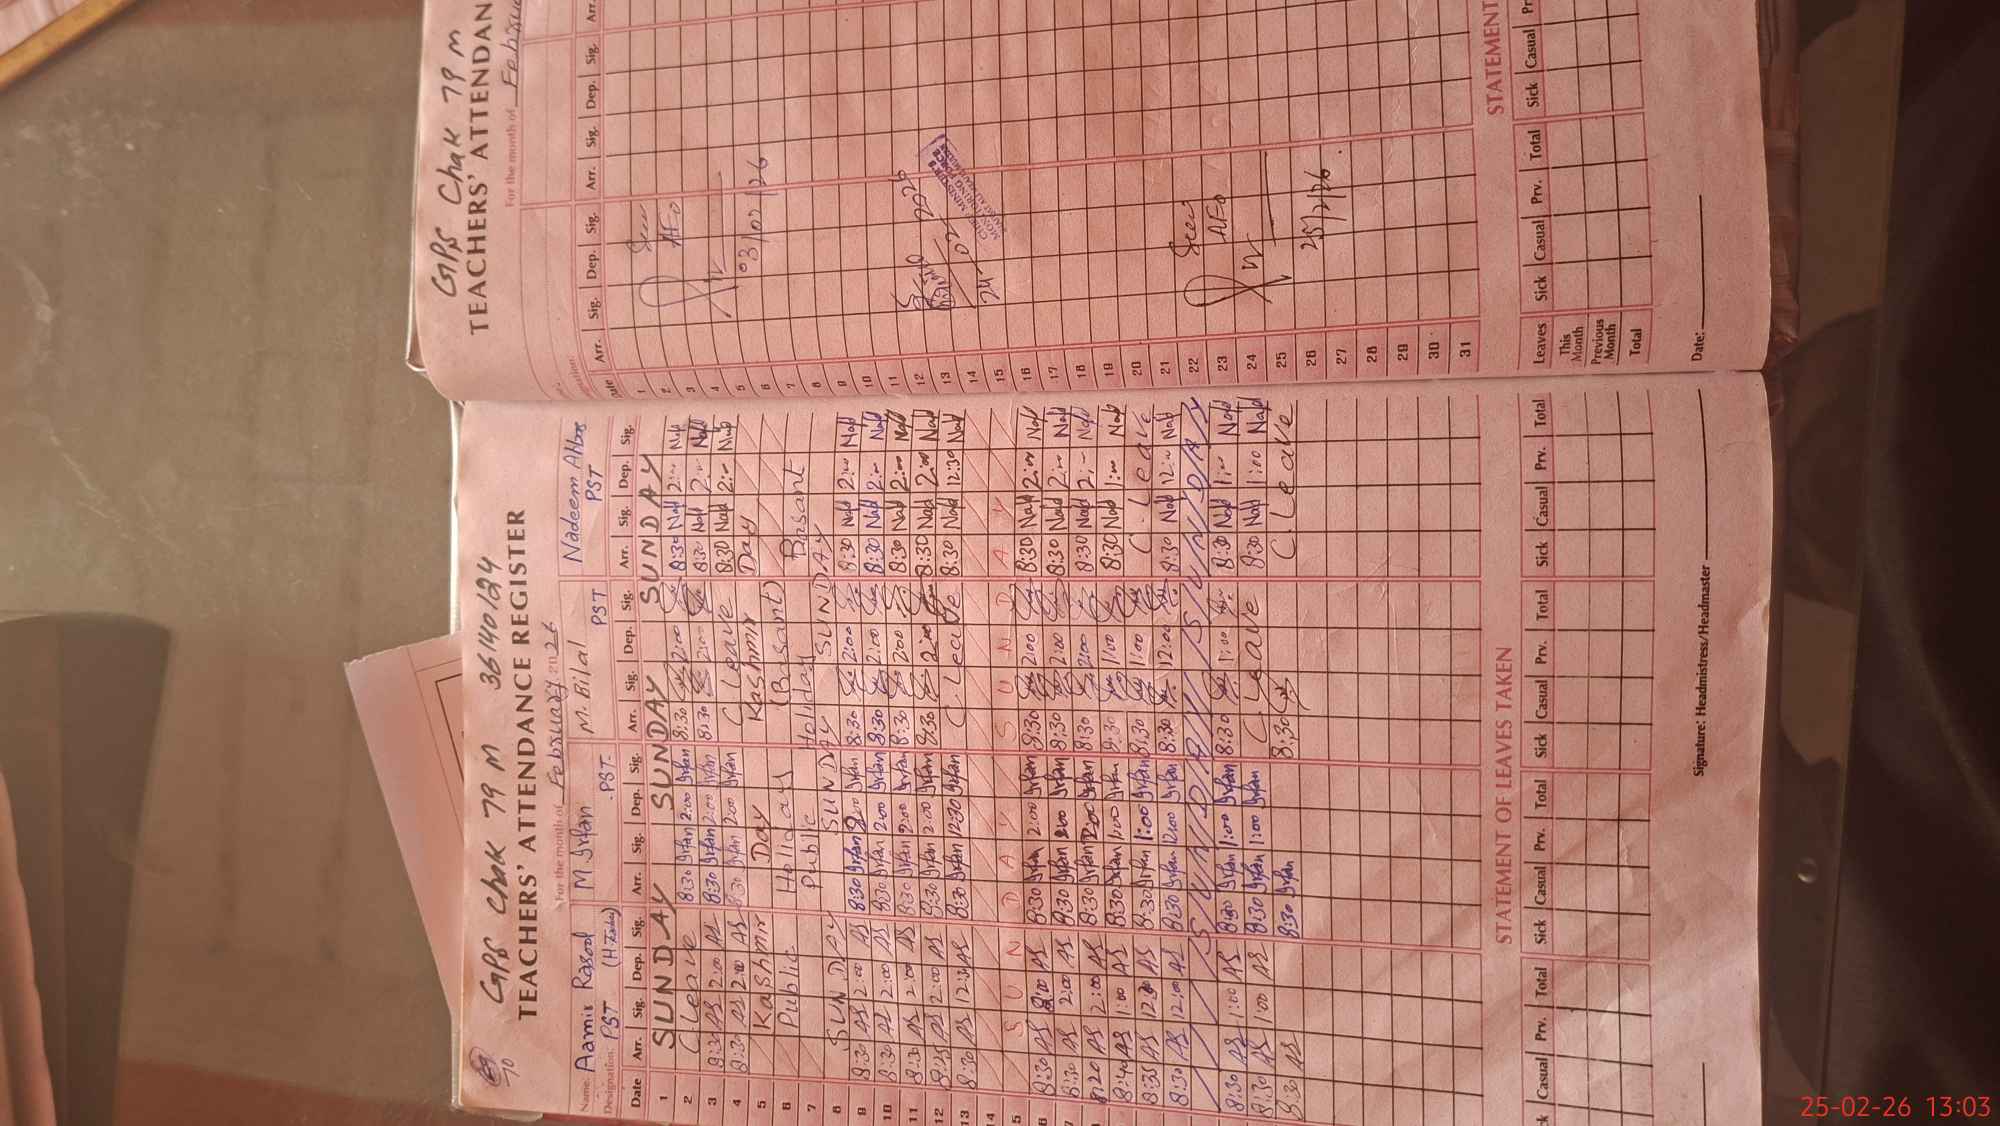 GPS Chak 79 M 36140124
TEACHERS' ATTENDANCE REGISTER
For the month of February 2026
Name: Aamir Rasool M. Irfan M. Bilal Nadeem Abbas
Designation: PST (H.Teacher) PST PST PST
Date Arr. Sig. Dep. Sig. Arr. Sig. Dep. Sig. Arr. Sig. Dep. Sig. Arr. Sig. Dep. Sig.
1 SUNDAY SUNDAY SUNDAY
2 C. Leave 8:30 Irfan 2:00 Irfan 8:30 2:00 8:30 Nad 2:00 Nad
3 8:30 AS 2:00 AS 8:30 Irfan 2:00 Irfan 8:30 2:00 8:30 Nad 2:00 Nad
4 8:30 AS 2:00 AS 8:30 Irfan 2:00 Irfan C Leave 8:30 Nad 2:00 Nad
5 Kashmir Day Kashmir Day
6 Public Holiday (Basant)
7 Public Holiday Basant
8 SUNDAY SUNDAY SUNDAY
9 8:30 AS 2:00 AS 8:30 Irfan 2:00 Irfan 8:30 2:00 8:30 Nad 2:00 Nad
10 8:30 AS 2:00 AS 8:30 Irfan 2:00 Irfan 8:30 2:00 8:30 Nad 2:00 Nad
11 8:30 AS 2:00 AS 8:30 Irfan 2:00 Irfan 8:30 2:00 8:30 Nad 2:00 Nad
12 8:25 AS 2:00 AS 8:30 Irfan 2:00 Irfan 8:30 2:00 8:30 Nad 2:00 Nad
13 8:30 AS 12:30 AS 8:30 Irfan 12:30 Irfan C Leave 8:30 Nad 12:30 Nad
14
15 SUNDAY SUNDAY
16 8:30 AS 2:00 AS 8:30 Irfan 2:00 Irfan 8:30 2:00 8:30 Nad 2:00 Nad
17 8:30 AS 2:00 AS 8:30 Irfan 2:00 Irfan 8:30 2:00 8:30 Nad 2:00 Nad
8:20 AS 2:00 AS 8:30 Irfan 2:00 Irfan 8:30 2:00 8:30 Nad 2:00 Nad
8:40 AS 1:00 AS 8:30 Irfan 1:00 Irfan 8:30 1:00 8:30 Nad 1:00 Nad
8:35 AS AS 8:30 Irfan 1:00 Irfan 8:30 1:00 C. Leave
8:30 AS 12:00 AS 8:30 Irfan 12:00 Irfan 8:30 12:00 8:30 Nad 12:00 Nad
SUNDAY SUNDAY
8:30 AS 1:00 AS 8:30 Irfan 1:00 Irfan 8:30 1:00 8:30 Nad 1:00 Nad
8:30 AS 1:00 AS 8:30 Irfan 1:00 Irfan C Leave 8:30 Nad 1:00 Nad
8:30 AS 8:30 Irfan 8:30 C. Leave
STATEMENT OF LEAVES TAKEN
Casual Prv. Total Sick Casual Prv. Total Sick Casual Prv. Total Sick Casual Prv. Total
Signature: Headmistress/Headmaster
GPS Chak 79 M
TEACHERS' ATTENDAN
For the month of Februa
Date Arr. Sig. Dep. Sig. Arr. Sig. Dep. Sig. Arr.
1
2
3
4
5
6
7
8
9
10
11
12
13
14
15
16
17
18
19
20
21
22
23
24
25
26
27
28
29
30
31
Seen
AEO
03/02/26
24/02/2026
CHIEF MINISTER'S
MONITORING FORCE
Seen
AEO
25/2/26
STATEMENT
Leaves Sick Casual Prv. Total Sick Casual Pr
This Month
Previous Month
Total
Date:
25-02-26 13:03